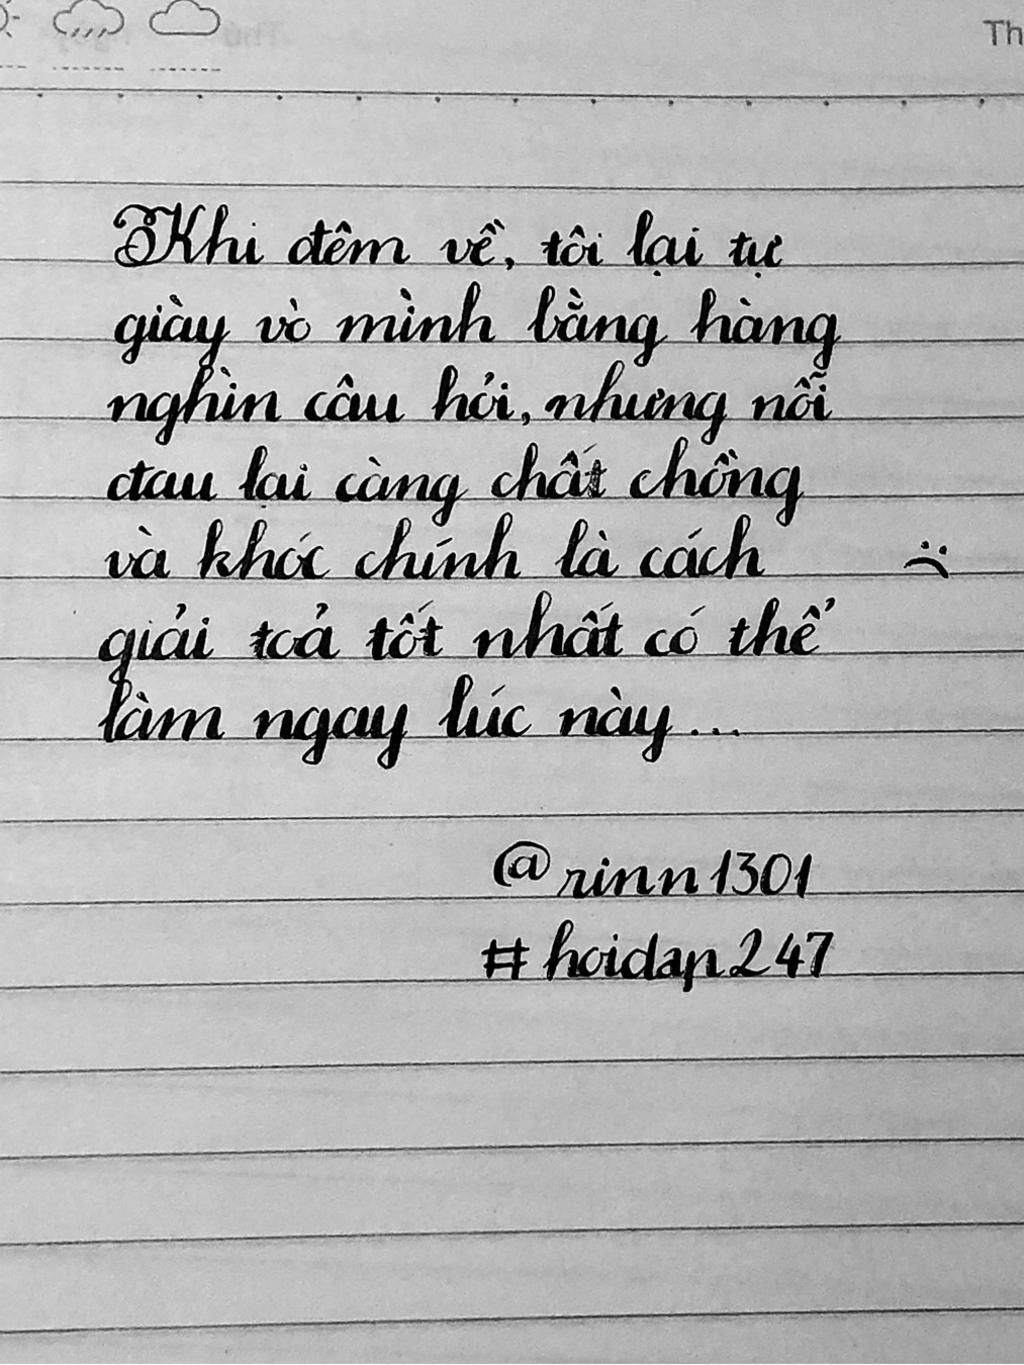 Th
Khi đêm về, tôi lại tự
giày vò mình bằng hàng
nghìn câu hỏi, nhưng nỗi
đau lại càng chất chồng
và khóc chính là cách :(
giải toả tốt nhất có thể
làm ngay lúc này...
@rinn1301
#hoidap247